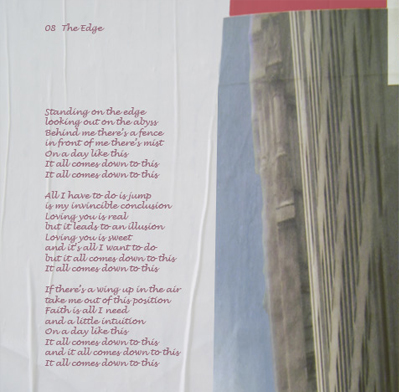 08 The Edge
Standing on the edge
looking out on the abyss
Behind me there's a fence
in front of me there's mist
On a day like this
It all comes down to this
It all comes down to this
All I have to do is jump
is my invincible conclusion
Loving you is real
but it leads to an illusion
Loving you is sweet
and it's all I want to do
but it all comes down to this
It all comes down to this
If there's a wing up in the air
take me out of this position
Faith is all I need
and a little intuition
On a day like this
It all comes down to this
and it all comes down to this
It all comes down to this